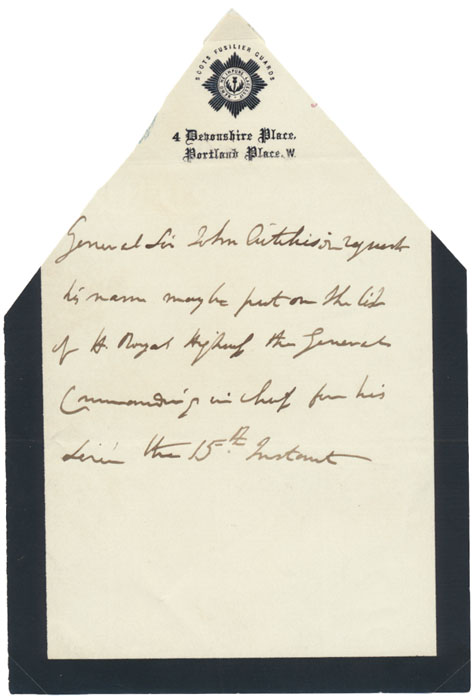 SCOTS FUSILIER GUARDS
NEMO ME IMPUNE LACESSIT
4 Devonshire Place,
Portland Place, W.
General Sir John Aitchison requests
his name may be put on the list
of H. Royal Highness the General
Commanding in chief for his
Levée the 15th Instant